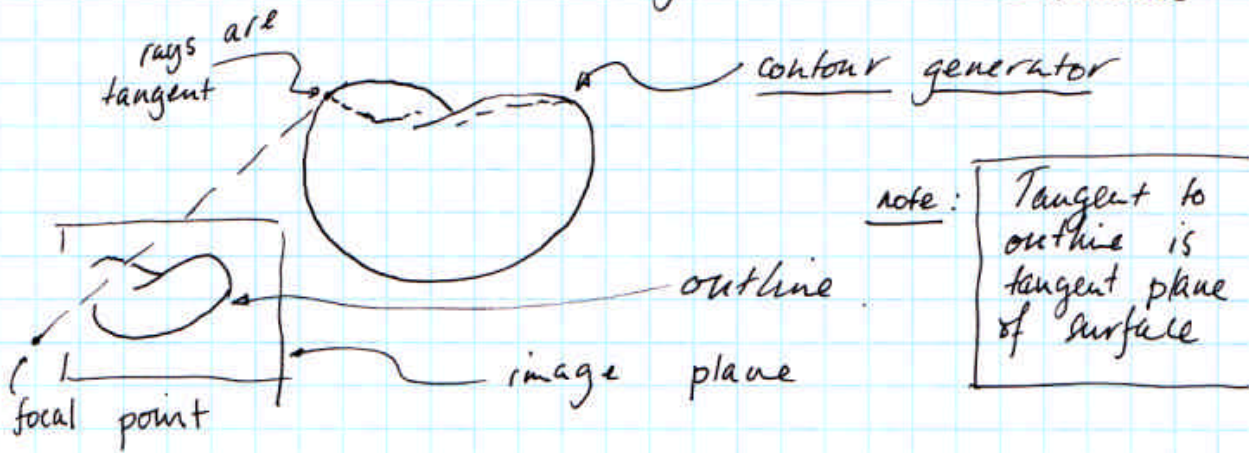 rays are
tangent
contour generator
note:
Tangent to
outline is
tangent plane
of surface
outline
image plane
focal point